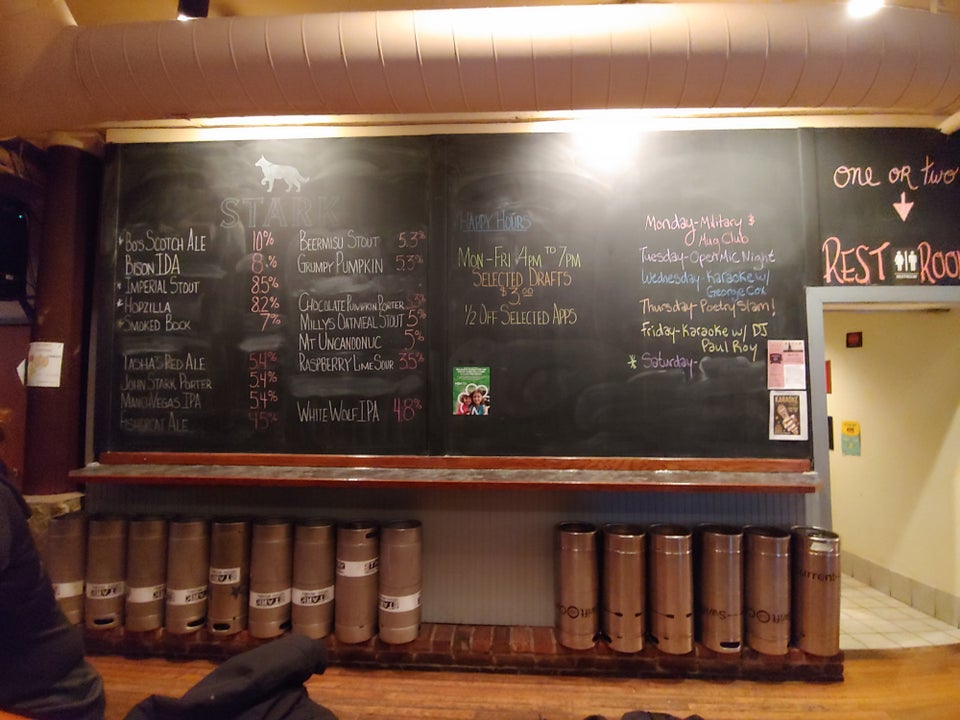 STARK
Bo's Scotch Ale 10%
Bison IDA 8.%
* Imperial Stout 8.5%
* Hopzilla 8.2%
* Smoked Bock 7%
Tasha's Red Ale 5.4%
John Stark Porter 5.4%
Mano Vegas IPA 5.4%
Fishercat Ale 4.5%
Beermisu Stout 5.3%
Grumpy Pumpkin 5.3%
Chocolate Pumpkin Porter
Milly's Oatmeal Stout 5%
Mt Uncandonuc 5%
Raspberry Lime Sour 3.5%
White Wolf IPA 4.8%
Happy Hours
Mon-Fri 4pm to 7pm
Selected Drafts
$3.00
1/2 Off Selected Apps
Monday-Military &
Mug Club
Tuesday-Open Mic Night
Wednesday Karaoke w/
George Cox
Thursday-Poetry Slam!
Friday-Karaoke w/ DJ
Paul Roy
* Saturday-
KARAOKE
one or two
REST ROO